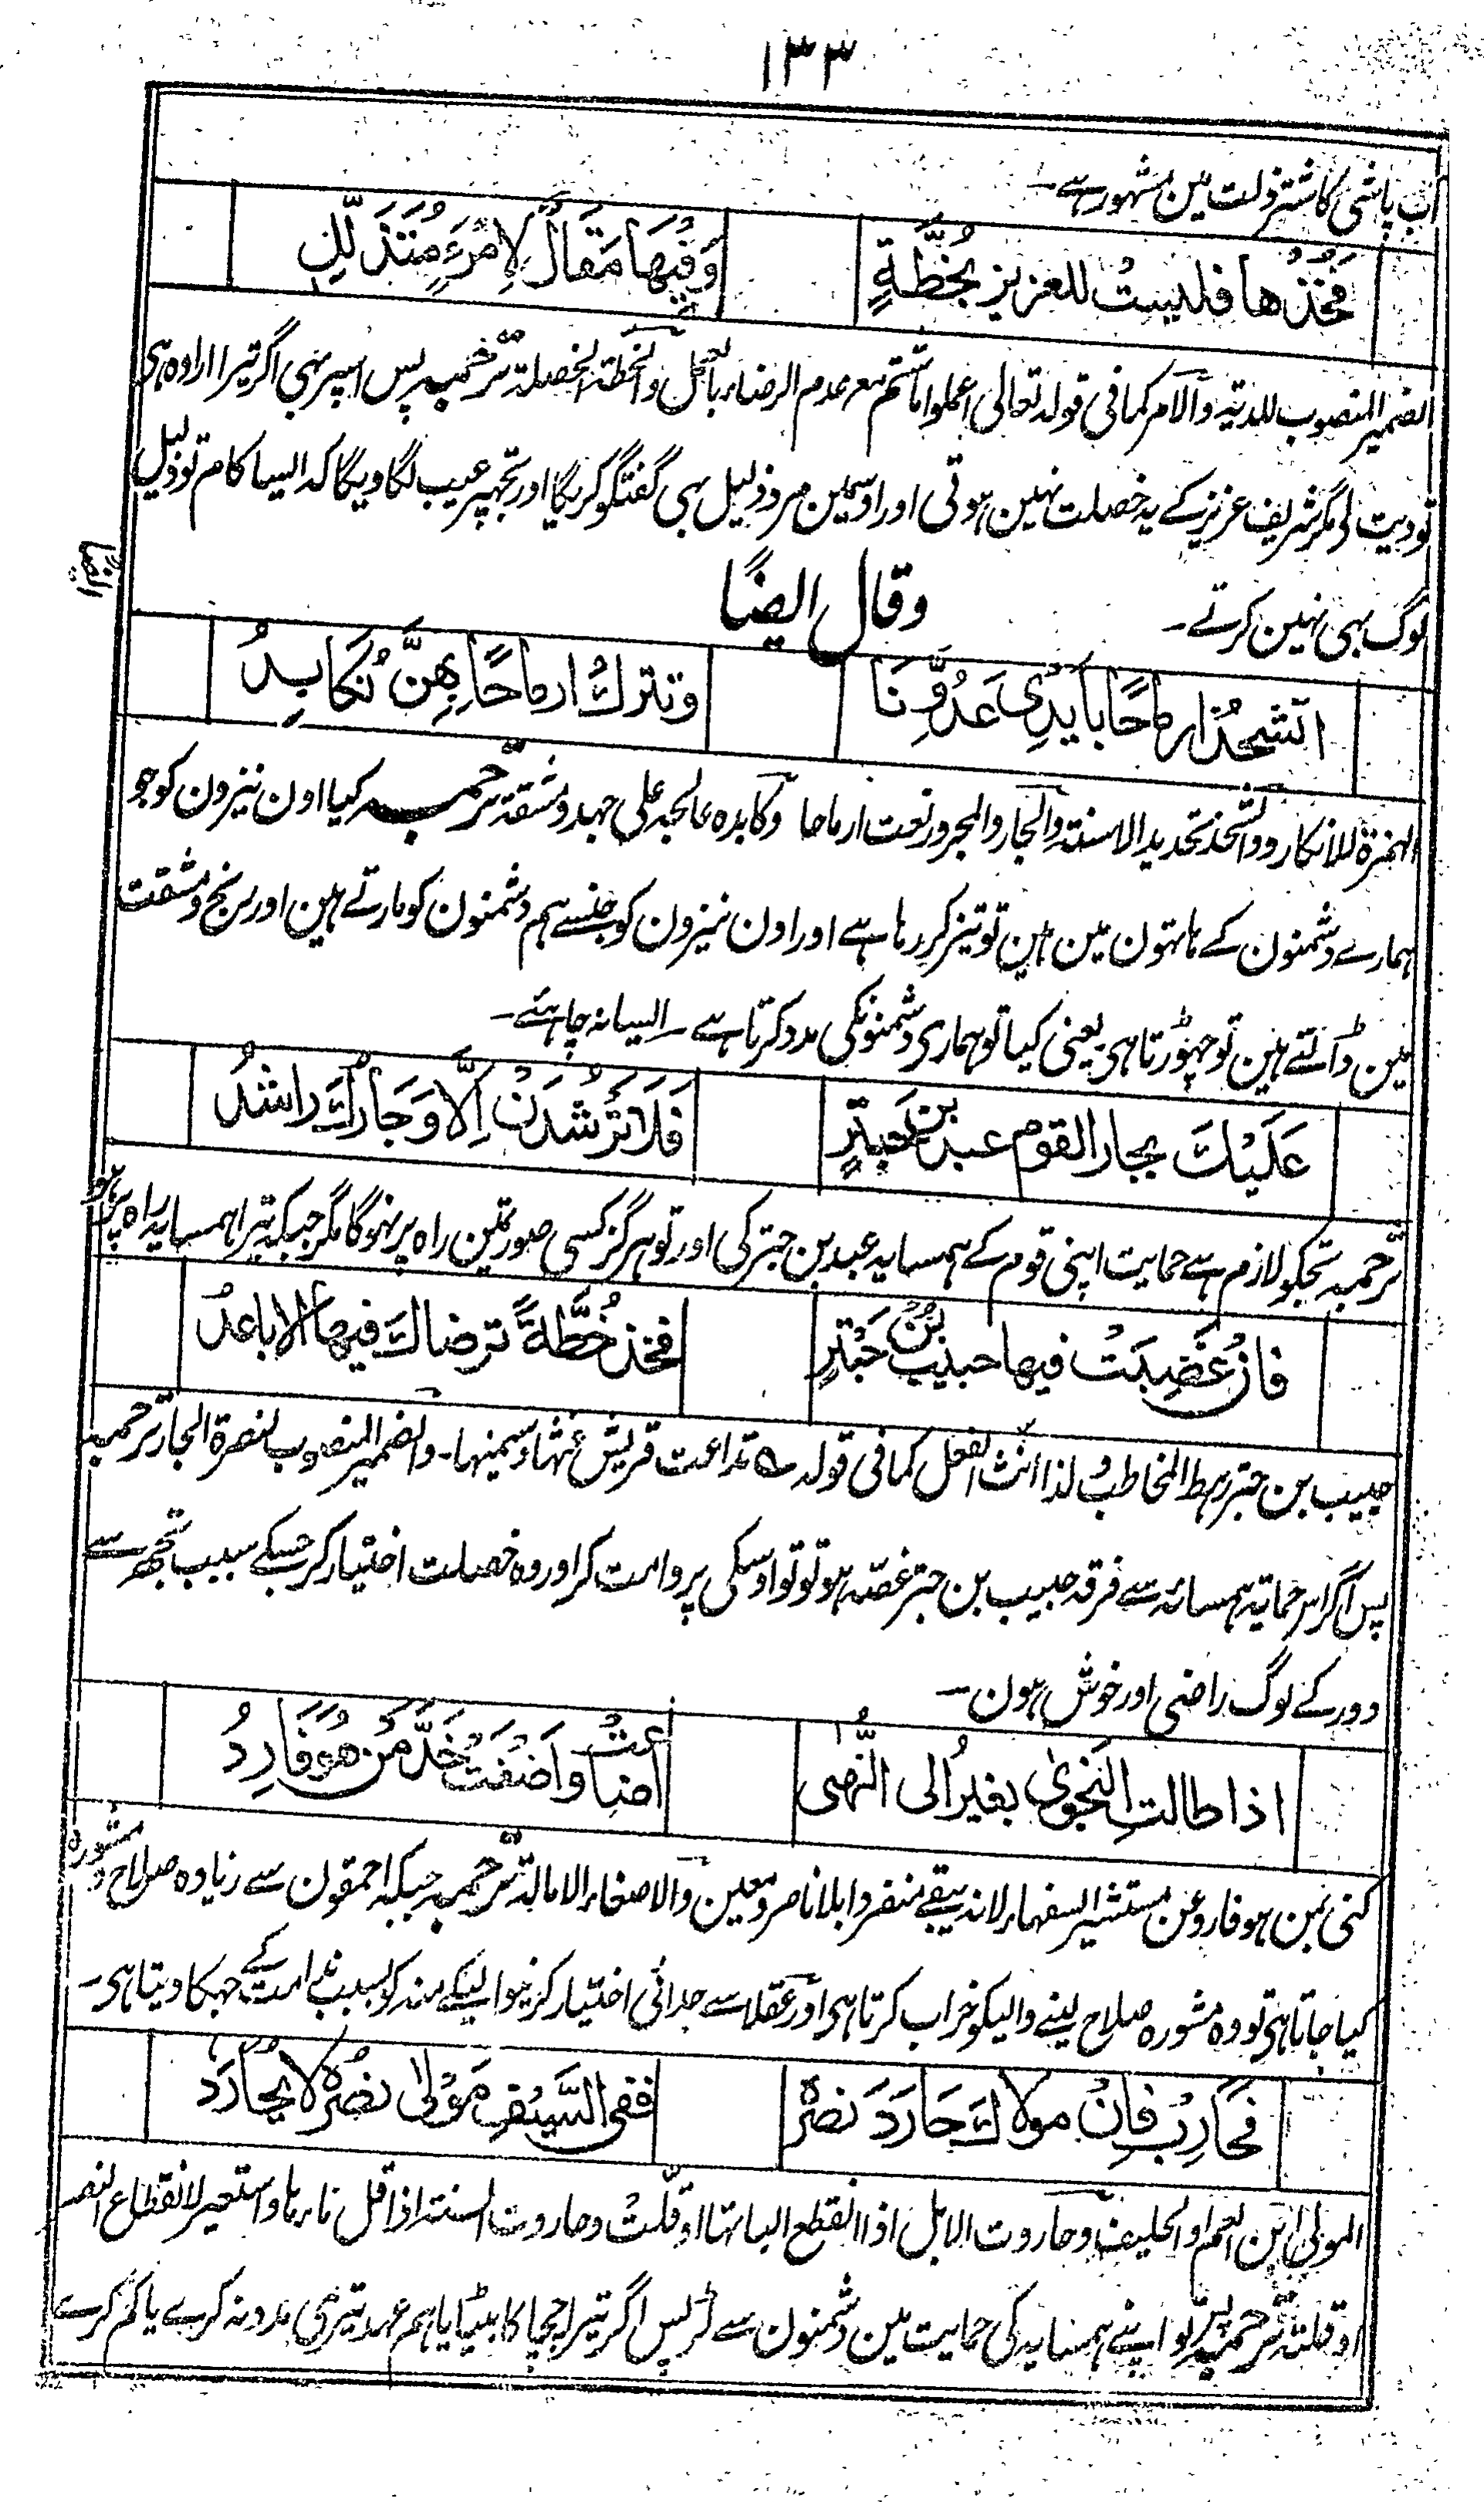 ۱۳۳
آب پاشی کا شتر ذلت مین مشہور ہے۔
فَخُذْها فليستْ للعزيز بخُطَّةٍ وَفِيْهَا مَقَالٌ لِامْرَءٍ مُتَذَلِّلِ
الضمیر المنصوب للدیۃ والامر کما فی قولہ تعالی اعملوا ماشئتم مع عدم الرضاء بالعمل والخطۃ الخصلۃ ترجمہ پس اسپر بہی اگر تیرا ارادہ ہی
تو دیت لی مگر شریف عزیز کے یہ خصلت نہین ہوتی اور اوسمین مرد ذلیل بہی گفتگو کریگا اور تجھپر عیب لگاویگا کہ ایسا کام تو ذلیل
لوگ بہی نہین کرتے۔
وقال ايضًا
اتشحُذُ ارماحًا بايدِی عَدُوِّنَا وتترك ارماحًا بِهِنَّ نُكَابِدُ
الہمزۃ للانکار والشحذ تحدید الاسنۃ والجار والمجرور نعت ارماحا وکابدہ عالجہ علی جہد ومشقۃ ترجمہ کیا اون نیزون کو جو
ہمارے دشمنون کے ہاتہون مین ہین تو تیز کر رہا ہے اور اون نیزون کو جنسے ہم دشمنون کو مارتے ہین اور رنج و مشقت
مین ڈالتے ہین تو چہوڑتا ہی یعنی کیا تو ہماری دشمنونکی مدد کرتا ہے۔ ایسا نہ چاہئے۔
عَلَيْكَ بجار القوم عبد بن حَبتَرٍ فَلَا تَرْشُدَنْ اِلَّا وَجَارُكَ راشدُ
ترجمہ تجکو لازم ہے حمایت اپنی قوم کے ہمسایہ عبد بن حبتر کی اور تو ہرگز کسی صورتمین راہ پر نہوگا مگر جبکہ تیرا ہمسایہ راہ پر ہو
فان غَضِبَتْ فيها حبيبُ بْنُ حَبْتَرٍ فخذ خُطَّةً ترضاك فيها الاباعدُ
حبیب بن حبتر رہط المخاطب لذا انث الفعل کما فی قولہ ؎ تداعت قریش غثہا وسمینہا۔ والضمیر المنصوب لنصرۃ الجار ترجمہ
پس اگر اس حمایۃ ہمسائہ سے فرقہ حبیب بن حبتر غصّہ ہو تو تو اوسکی پروا مت کر اور وہ خصلت اختیار کر جسکے سبب تجھ سے
دور کے لوگ راضی اور خوش ہون۔
اذا طالتِ النجوىٰ بغير اُلى النُّهٰى اضاعتْ وَاَصْغَتْ خَدَّ مَنْ هُوَ فَارِدُ
کنی بمن ہو فارد عن مستشیر السفہاء لانہ یبقے منفردا بلا ناصر ومعین والاصغاء الامالۃ ترجمہ جبکہ احمقون سے زیادہ صلاح و مشورہ
کیا جاتا ہی تو وہ مشورہ صلاح لینے والیکو خراب کرتا ہی اور عقلا سے جدائی اختیار کرنیوالیکے منہ کو بسبب ندامت کے جہکا دیتا ہی۔
فَحَارِبْ فاِنْ مولاك حَارَدَ نصرُه ففی السَّيْفِ مَوْلًى نصرُه لا يُحَارِدُ
المولی ابن العم او الحلیف وحاردت الابل اذا انقطع البانہا او قلّت وحاردت السنۃ اذا قل ماءہا واستعیر لانقطاع النصر
او قلتہ ترجمہ پس تو اپنے ہمسایہ کی حمایت مین دشمنون سے لڑ پس اگر تیرا چچا کا بیٹا یا ہم عہد تیری مدد نہ کرے یا کم کرے